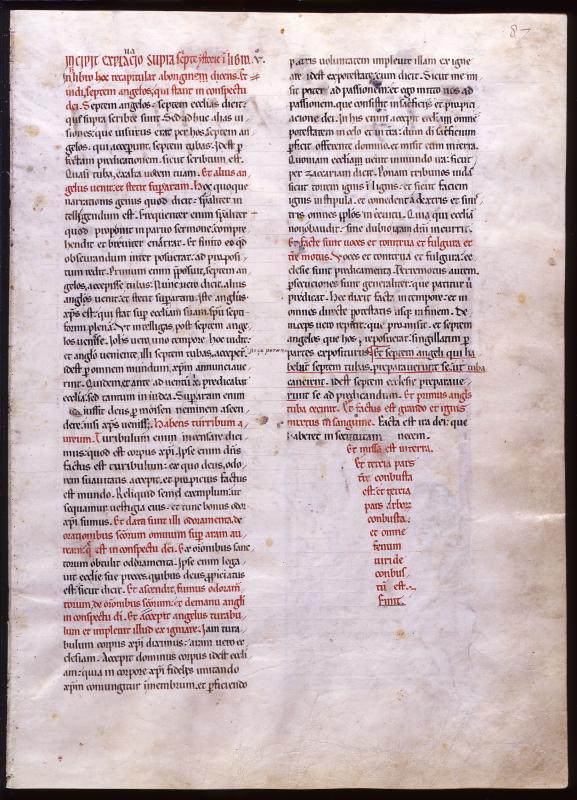 8-
Incipit explanacio supra scripte ystorie i libro. v.
In libro hoc recapitulat ab origine dicens. Et
uidi septem angelos, qui stant in conspectu
dei. Septem angelos septem ecclias dicit:
quib supra scribere sunt. Sed adhuc alias ui
siones que uisurus erat per hos septem an
gelos qui acceperunt septem tubas. Idest p
fectam predicationem. sicut scriptum est.
Quasi tuba, exalta uocem tuam. Et alius an
gelus uenit, et stetit supra aram. Hoc quoque
narrationis genus quod dicit: spaliter in
tellegendum est. Frequenter enim spaliter
quod proponit in paruo sermone, compre
hendit et breuiter enarrat. Et finito eo qd
obscurandum inter posuerat, ad proposi
tum redit. Primum enim pposuit, septem an
gelos, accepisse tubas. Nunc uero dicit, alius
angelus uenit, et stetit supra aram. Iste angelus
xps est: qui stat sup eccliam suam, spu septi
formi plenam. Ut intelligas, post septem ange
los uenisse. Johs uero, uno tempore hoc uidit:
et anglo ueniente, illi septem tubas acceperunt
idest p omnem mundum, xpm annunciaue
runt. Quidem et ante aduentu xpi predicabat
ecclia, sed tantum in iudea. Supra aram enim
iussit deus p moisen neminem ascen
dere, nisi xps uenisset. Habens turribulum a
ureum. Turibulum enim incensarie dici
mus: quod est corpus xpi. Ipse enim dns
factus est turibulum: ex quo deus, odo
rem suauitatis accepit, et propicius factus
est mundo. Reliquid semel exemplum: ut
sequamur uestigia eius, et tunc bonus odor
xpi sumus. Et data sunt illi odoramenta, de
orationibus scorum omnium sup aram au
ream, que est in conspectu dei. Ex oronibus sanc
torum obtulit odoramenta. Ipse enim lega
uit ecclie sue preces, quibus deus ppiciatus
est: sicut dicit. Et ascendit, fumus odoram
torum, de oronibus scorum, et de manu angli
in conspectu di. Et accepit angelus turabu
lum et impleuit illud ex igne are. Iam tura
bulum corpus xpi diximus: aram uero ec
clesiam. Accepit dominus corpus idest eccli
am: quia in corpore xpi fidelis imitando
xpm coniungitur in membrum, et pficiendo
patris voluntatem impleuit illam ex igne
are idest ex potestate, cum dicit. Sicut me mi
sit pater ad passionem, et ego mitto uos ad
passionem, que consistit in sacrificiis et propici
acione dei. In his enim accepit ecclia omnem
potestatem in celo et in terra: dum di sacrificium
pficit, offerente domino, et misit eam in terra.
Quoniam eccliam uenit in mundo ira: sicut
per zacariam dicit. Ponam tribunos iuda
sicut torrem ignis i lignis: et sicut faciem
ignis in stipula, et comedent a dextris et sinis
tris omnes pplos in circuitu. Qui qui ecclia
non obaudit: sine dubio iram dni incurrit.
Et facte sunt uoces et tonitrua et fulgura et
tre motus. Uoces et tonitrua et fulgura: ec
clesie sunt predicamenta. Terremotus autem,
psecuciones sunt generaliter: que patitur u
predicat. Hec dixit facta in tempore: et in
omnes directe potestatis usque in finem. De
inceps uero repetit, que promisit. et septem
angelos que hos preposuerat, singillatim p
partes expositurus. Et septem angeli qui ha
bebant septem tubas, preparauerunt se ut tuba
canerent. Idest septem ecclesie preparaue
runt se ad predicandum. Et primus angls
tuba cecinit. Et factus est grando et ignis
mixtus in sanguine. Facta est ira dei: que
haberet in se multam necem.
Et missa est in terra.
Et tercia pars
tre combusta
est: et tercia
pars arbor
combusta.
et omne
fenum
uiride
conbus
tu est.
Finit.